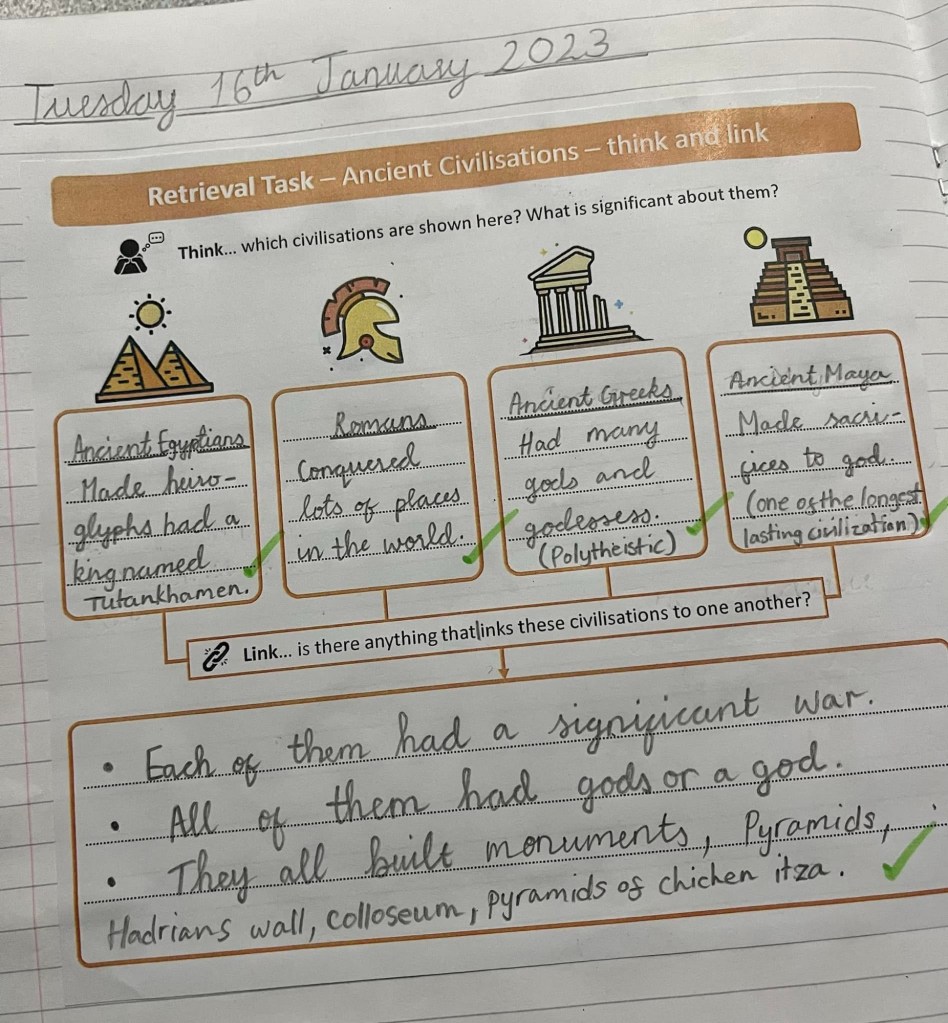 Tuesday 16th January 2023
Retrieval Task – Ancient Civilisations – think and link
Think... which civilisations are shown here? What is significant about them?
Ancient Egyptians
Made heiro-
glyphs had a
king named
Tutankhamen.
Romans
Conquered
lots of places
in the world.
Ancient Greeks
Had many
gods and
godessess.
(Polytheistic)
Ancient Maya
Made sacri-
fices to god.
(one of the longest
lasting civilization)
Link... is there anything that links these civilisations to one another?
• Each of them had a significant war.
• All of them had gods or a god.
• They all built monuments, Pyramids,
Hadrians wall, colloseum, pyramids of chichen itza.